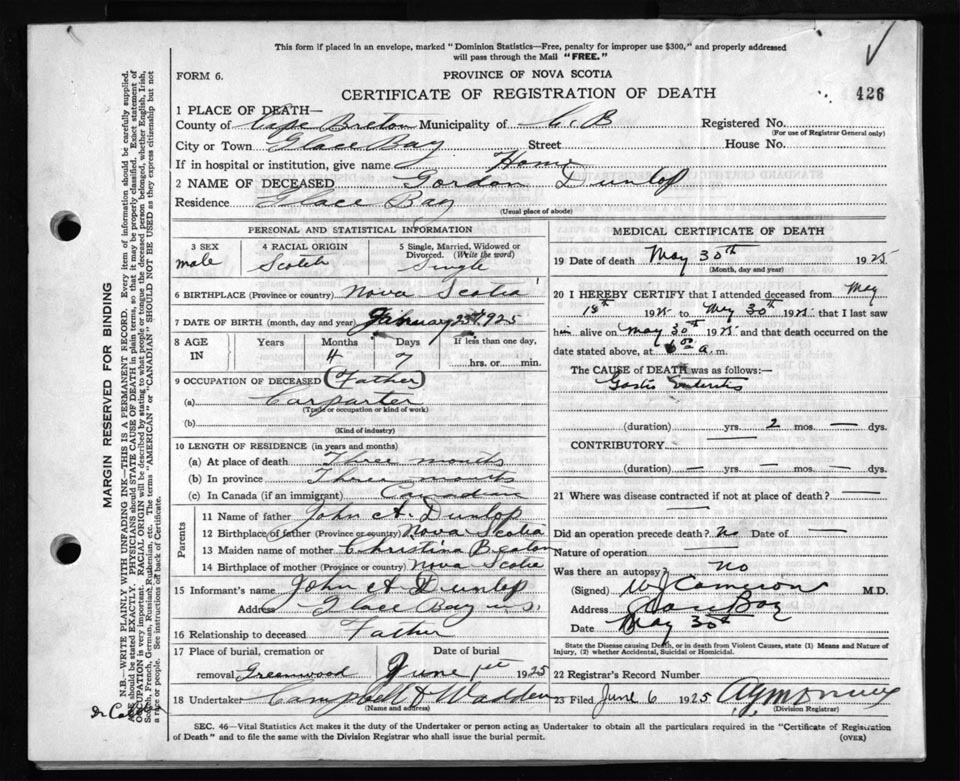 This form if placed in an envelope, marked "Dominion Statistics—Free, penalty for improper use $300," and properly addressed
will pass through the Mail "FREE."
FORM 6.
PROVINCE OF NOVA SCOTIA
CERTIFICATE OF REGISTRATION OF DEATH
426
1 PLACE OF DEATH—
County of Cape Breton Municipality of C. B Registered No.
(For use of Registrar General only)
City or Town Glace Bay Street House No.
If in hospital or institution, give name Home
2 NAME OF DECEASED Gordon Dunlop
Residence Glace Bay
(Usual place of abode)
PERSONAL AND STATISTICAL INFORMATION
3 SEX
male
4 RACIAL ORIGIN
Scotch
5 Single, Married, Widowed or
Divorced. (Write the word)
Single
6 BIRTHPLACE (Province or country) Nova Scotia
7 DATE OF BIRTH (month, day and year) February 23rd 1925
8 AGE
IN
Years Months Days If less than one day,
4 7 hrs. or min.
9 OCCUPATION OF DECEASED (Father)
(a) Carparter
(Trade or occupation or kind of work)
(b)
(Kind of industry)
10 LENGTH OF RESIDENCE (in years and months)
(a) At place of death Three months
(b) In province Three months
(c) In Canada (if an immigrant) Canadian
Parents
11 Name of father John A. Dunlop
12 Birthplace of father (Province or country) Nova Scotia
13 Maiden name of mother Christina Beaton
14 Birthplace of mother (Province or country) Nova Scotia
15 Informant's name John A Dunlop
Address Glace Bay N.S.
16 Relationship to deceased Father
17 Place of burial, cremation or Date of burial
removal Greenwood June 1st 1925
18 Undertaker Campbell & Wadden
(Name and address)
MEDICAL CERTIFICATE OF DEATH
19 Date of death May 30th 1925
(Month, day and year)
20 I HEREBY CERTIFY that I attended deceased from May
18th 1925 to May 30th 1925 that I last saw
him alive on May 30th 1925 and that death occurred on the
date stated above, at 6 a. m.
The CAUSE of DEATH was as follows:—
Gastro Enteritis
(duration) yrs. 2 mos. — dys.
CONTRIBUTORY —
(duration) — yrs. — mos. — dys.
21 Where was disease contracted if not at place of death? —
Did an operation precede death? No Date of —
Nature of operation —
Was there an autopsy? No
(Signed) W J Cameron M.D.
Address Glace Bay
Date May 30th
State the Disease causing Death, or in death from Violent Causes, state (1) Means and Nature of
Injury, (2) whether Accidental, Suicidal or Homicidal.
22 Registrar's Record Number
23 Filed June 6 1925
(Division Registrar)
SEC. 46—Vital Statistics Act makes it the duty of the Undertaker or person acting as Undertaker to obtain all the particulars required in the "Certificate of Registration
of Death" and to file the same with the Division Registrar who shall issue the burial permit.
(OVER)
MARGIN RESERVED FOR BINDING
N.B.—WRITE PLAINLY WITH UNFADING INK—THIS IS A PERMANENT RECORD. Every item of information should be carefully supplied.
AGE should be stated EXACTLY. PHYSICIANS should STATE CAUSE OF DEATH in plain terms, so that it may be properly classified. Exact statement of
OCCUPATION is very important. RACIAL ORIGIN will be described by stating to what people or tongue the deceased person belonged, whether English, Irish,
Scotch, French, German, Russian, Ruthenian, etc. The terms "AMERICAN" or "CANADIAN" SHOULD NOT BE USED as they express citizenship but not
a race or people. See instructions on back of Certificate.